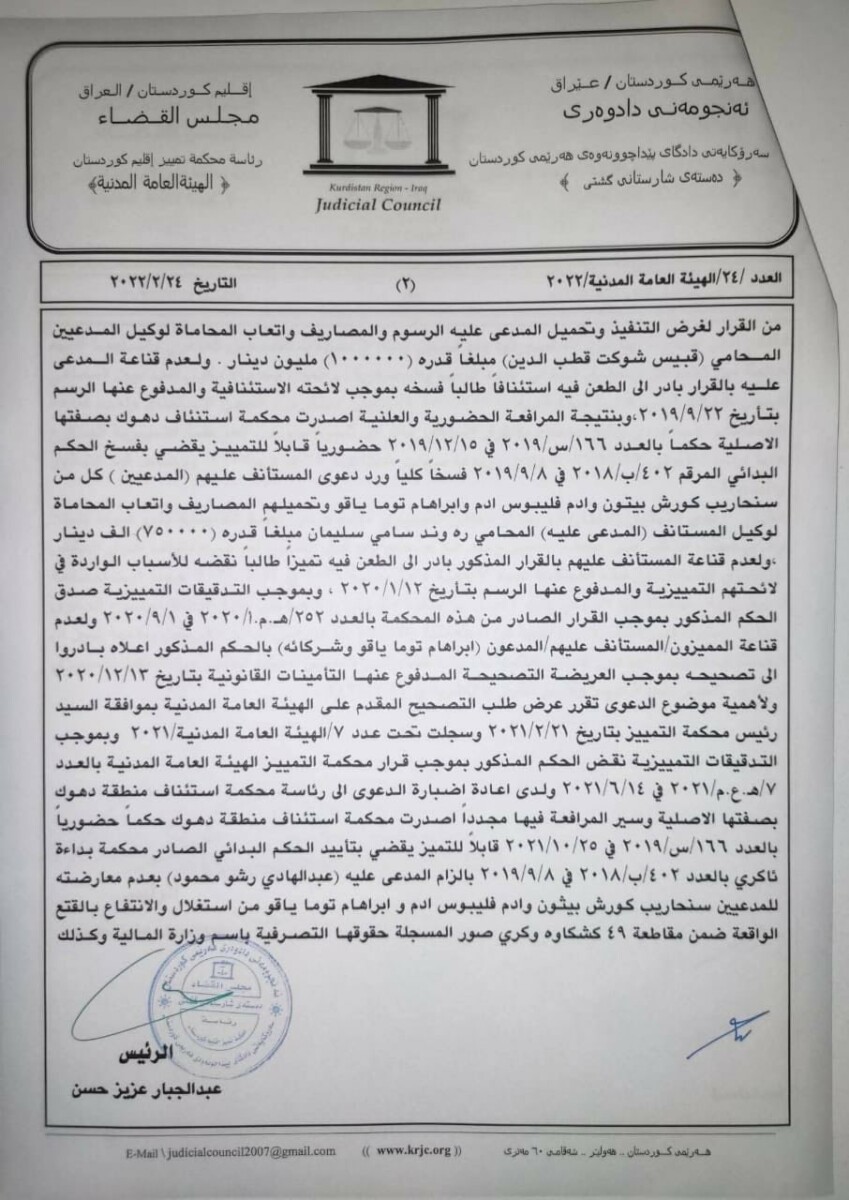 هەرێمی کوردستان / عێراق
ئەنجومەنی دادوەری
سەرۆکایەتی دادگای پێداچوونەوەی هەرێمی کوردستان
﴿ دەستەی شارستانی گشتی ﴾
إقليم كوردستان / العراق
مجلس القضاء
رئاسة محكمة تمييز إقليم كوردستان
﴿ الهيئة العامة المدنية ﴾
Kurdistan Region - Iraq
Judicial Council
العدد /٢٤/الهيئة العامة المدنية/٢٠٢٢ (٢) التاريخ ٢٠٢٢/٢/٢٤
من القرار لغرض التنفيذ وتحميل المدعى عليه الرسوم والمصاريف واتعاب المحاماة لوكيل المدعيين
المحامي (قبيس شوكت قطب الدين) مبلغاً قدره (١٠٠٠٠٠٠) مليون دينار . ولعدم قناعة المدعى
عليه بالقرار بادر الى الطعن فيه استئنافاً طالباً فسخه بموجب لائحته الاستئنافية والمدفوع عنها الرسم
بتأريخ ٢٠١٩/٩/٢٢،وبنتيجة المرافعة الحضورية والعلنية اصدرت محكمة استئناف دهوك بصفتها
الاصلية حكماً بالعدد ١٦٦/س/٢٠١٩ في ٢٠١٩/١٢/١٥ حضورياً قابلاً للتمييز يقضي بفسخ الحكم
البدائي المرقم ٤٠٢/ب/٢٠١٨ في ٢٠١٩/٩/٨ فسخاً كلياً ورد دعوى المستأنف عليهم (المدعيين ) كل من
سنحاريب كورش بيتون وادم فليبوس ادم وابراهام توما ياقو وتحميلهم المصاريف واتعاب المحاماة
لوكيل المستانف (المدعى عليه) المحامي ره وند سامي سليمان مبلغاً قدره (٧٥٠٠٠٠) الف دينار
،ولعدم قناعة المستأنف عليهم بالقرار المذكور بادر الى الطعن فيه تميزاً طالباً نقضه للأسباب الواردة في
لائحتهم التمييزية والمدفوع عنها الرسم بتأريخ ٢٠٢٠/١/١٢ ، وبموجب التدقيقات التمييزية صدق
الحكم المذكور بموجب القرار الصادر من هذه المحكمة بالعدد ٢٥٢/هـ.م.١/٢٠٢٠ في ٢٠٢٠/٩/١ ولعدم
قناعة المميزون/المستأنف عليهم/المدعون (ابراهام توما ياقو وشركائه) بالحكم المذكور اعلاه بادروا
الى تصحيحه بموجب العريضة التصحيحة المدفوع عنها التأمينات القانونية بتاريخ ٢٠٢٠/١٢/١٣
ولأهمية موضوع الدعوى تقرر عرض طلب التصحيح المقدم على الهيئة العامة المدنية بموافقة السيد
رئيس محكمة التمييز بتاريخ ٢٠٢١/٢/٢١ وسجلت تحت عدد ٧/الهيئة العامة المدنية/٢٠٢١ وبموجب
التدقيقات التمييزية نقض الحكم المذكور بموجب قرار محكمة التمييز الهيئة العامة المدنية بالعدد
٧/هـ.ع.م/٢٠٢١ في ٢٠٢١/٦/١٤ ولدى اعادة اضبارة الدعوى الى رئاسة محكمة استئناف منطقة دهوك
بصفتها الاصلية وسير المرافعة فيها مجدداً اصدرت محكمة استئناف منطقة دهوك حكماً حضورياً
بالعدد ١٦٦/س/٢٠١٩ في ٢٠٢١/١٠/٢٥ قابلاً للتميز يقضي بتأييد الحكم البدائي الصادر محكمة بداءة
ئاكري بالعدد ٤٠٢/ب/٢٠١٨ في ٢٠١٩/٩/٨ بالزام المدعى عليه (عبدالهادي رشو محمود) بعدم معارضته
للمدعيين سنحاريب كورش بيثون وادم فليبوس ادم و ابراهام توما ياقو من استغلال والانتفاع بالقتع
الواقعة ضمن مقاطعة ٤٩ كشكاوه وكري صور المسجلة حقوقها التصرفية باسم وزارة المالية وكذلك
مجلس القضاء
الرئيس
عبدالجبار عزيز حسن
هەرێمی کوردستان .. هەولێر .. شەقامی ٦٠ مەتری (( www.krjc.org )) E-Mail \ judicialcouncil2007@gmail.com